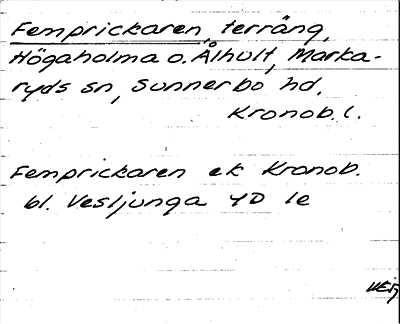 Femprickaren, terräng,
Högaholma o. Ålhult, Marka-
ryds sn, Sunnerbo hd,
Kronob. l.
Femprickaren ek Kronob.
bl. Vesljunga 4D 1e